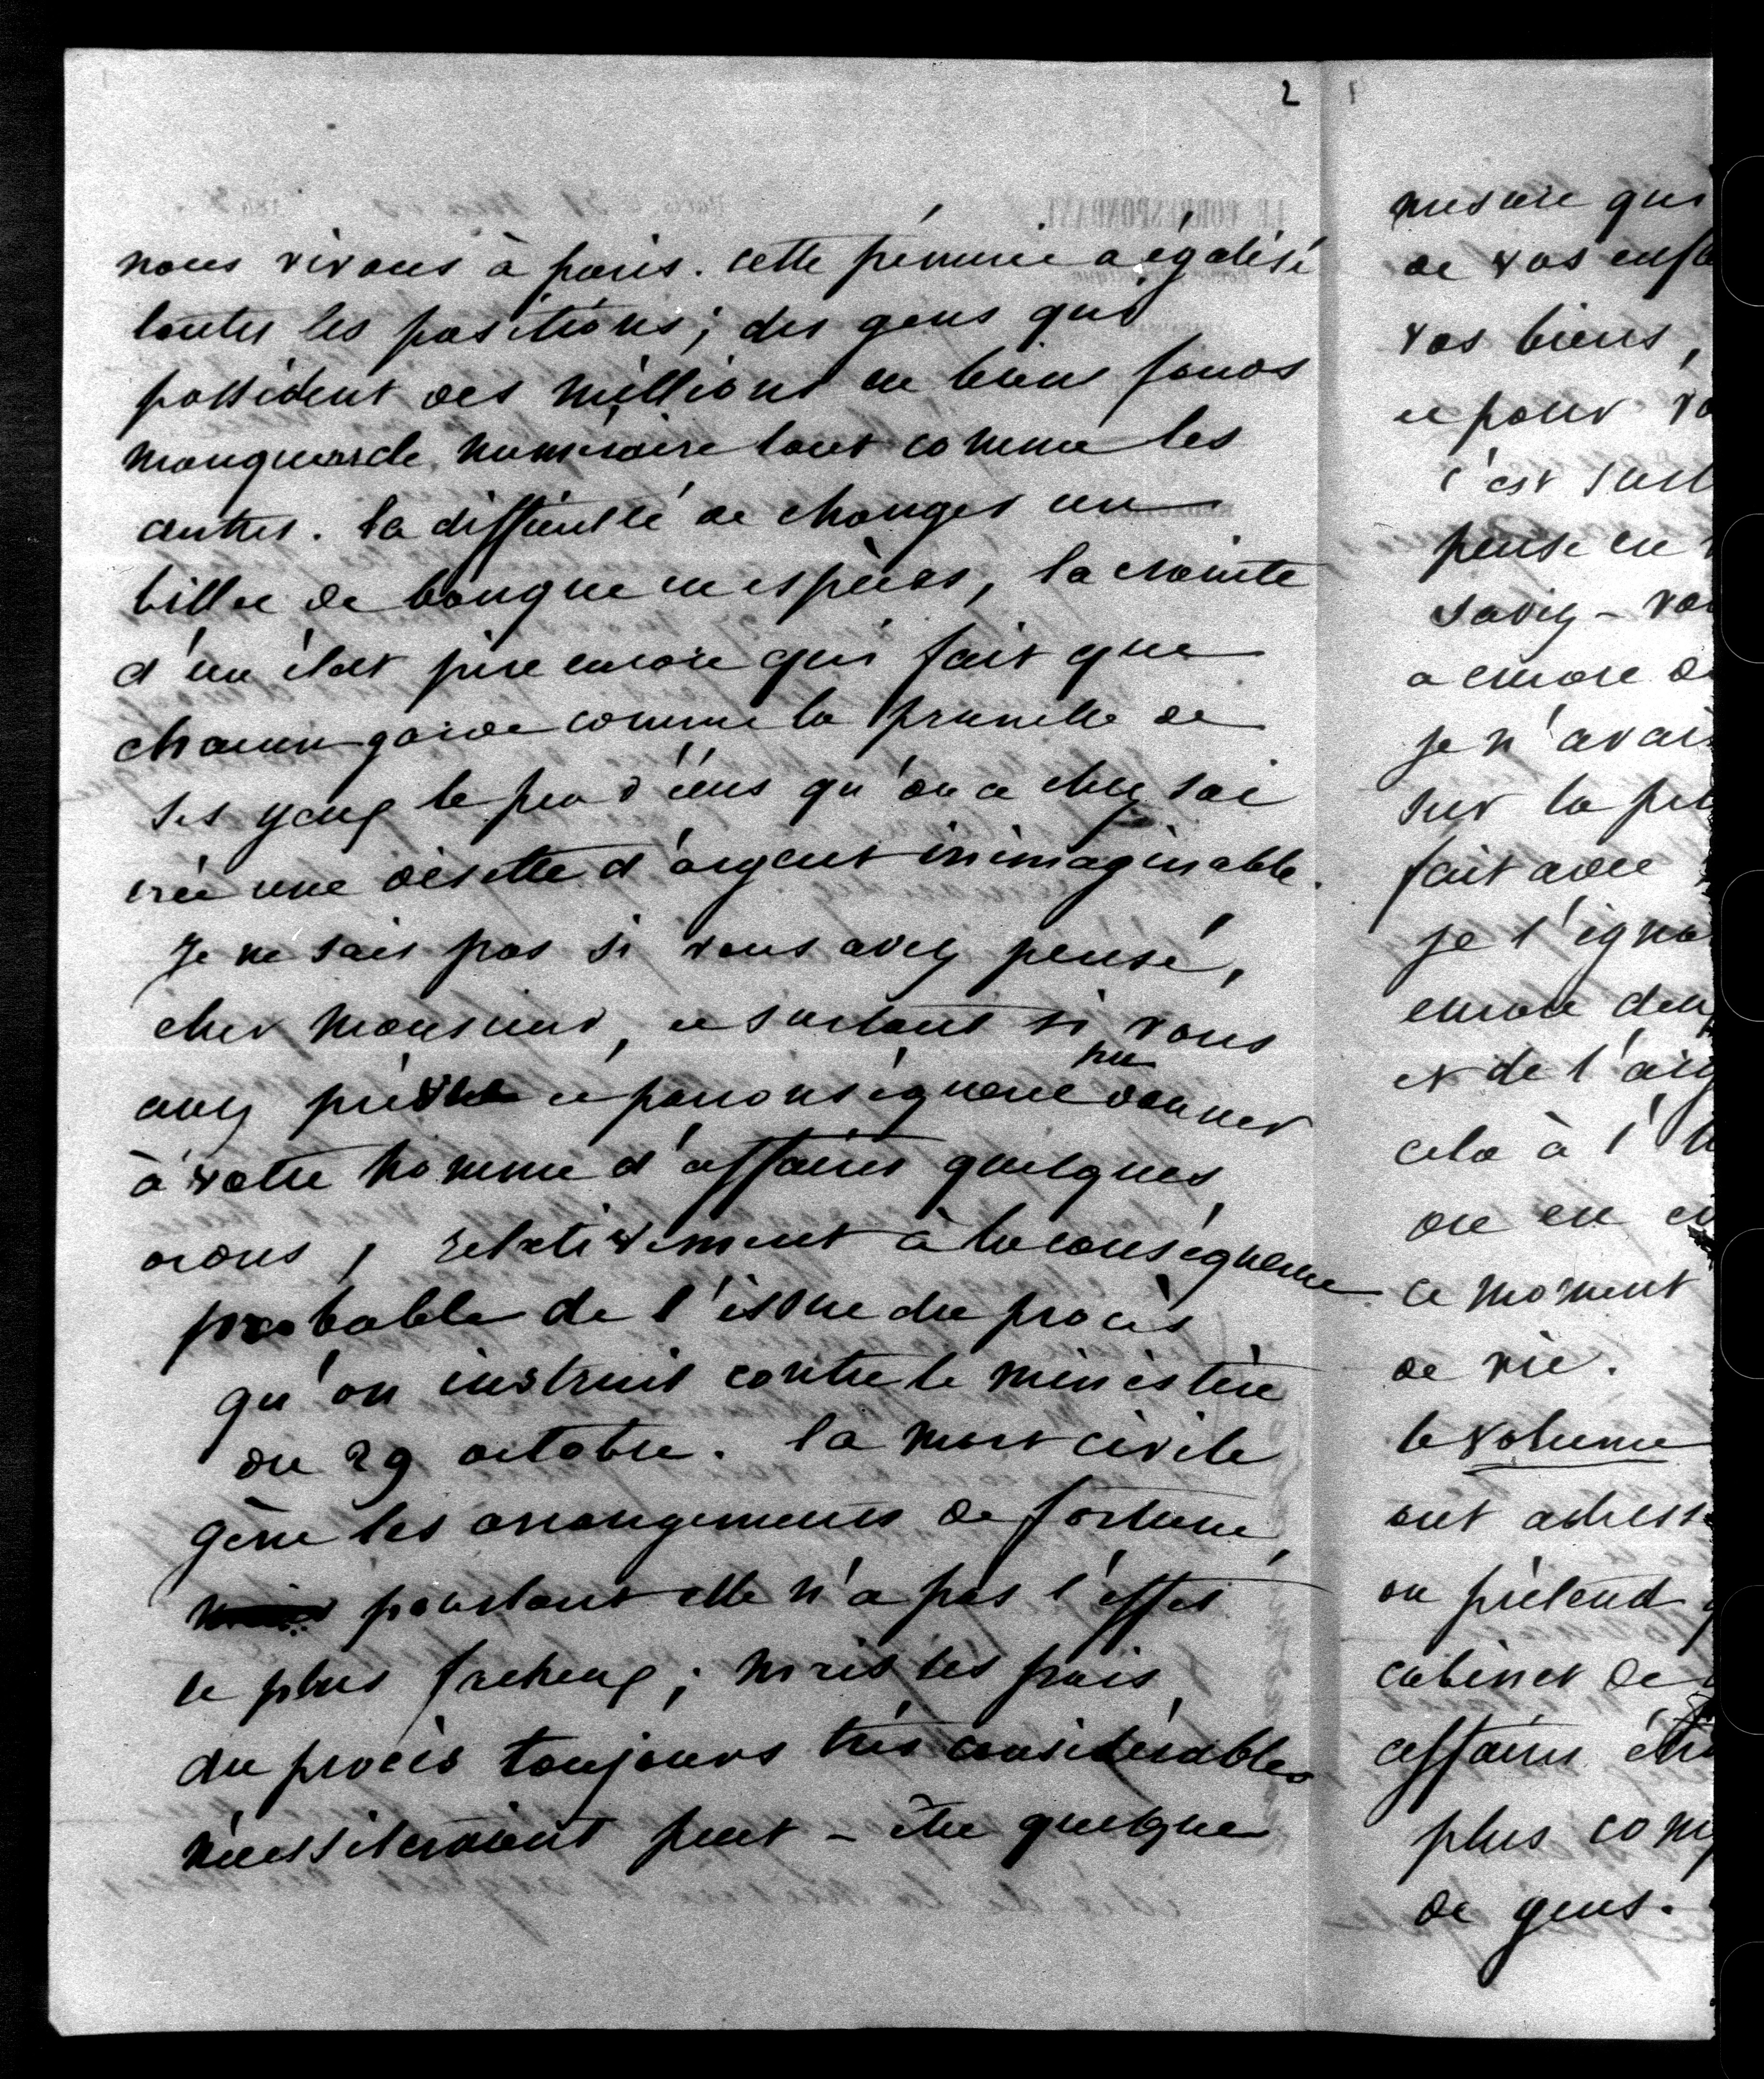 2
nous vivons à paris. cette pénurie a égalisé
toutes les positions; des gens qui
possèdent des millions en biens fonds
manquent de numéraire tout comme les
autres. la difficulté de changer un
billet de banque en espèces, la crainte
d'un état pire encore qui fait que
chacun garde comme la prunelle de
ses yeux le peu d'écus qu'on a chez soi
crée une disette d'argent inimaginable.
Je ne sais pas si vous avez pensé,
cher monsieur, et surtout si vous
avez pu et par conséquent pu donner
à votre homme d'affaires quelques
ordres, relativement à la conséquence
probable de l'issue du procès
qu'on instruit contre le ministère
du 29 octobre. la mort civile
gêne les arrangements de fortune,
pourtant elle n'a pas l'effet
le plus facheux; mais les frais
du procès toujours très considérables
nécessiteraient peut-être quelque
mesure qui
de vos enfa
vos biens,
et pour vo
c'est surt
pensé en
savez-vou
a encore d
je n'avais
sur la pe
fait avec
je l'igno
encore deu
et de l'arg
cela à l'h
on en
ce moment
de vie.
le volume
ont adress
on prétend q
cabinet de
affaires étr
plus com
de gens.